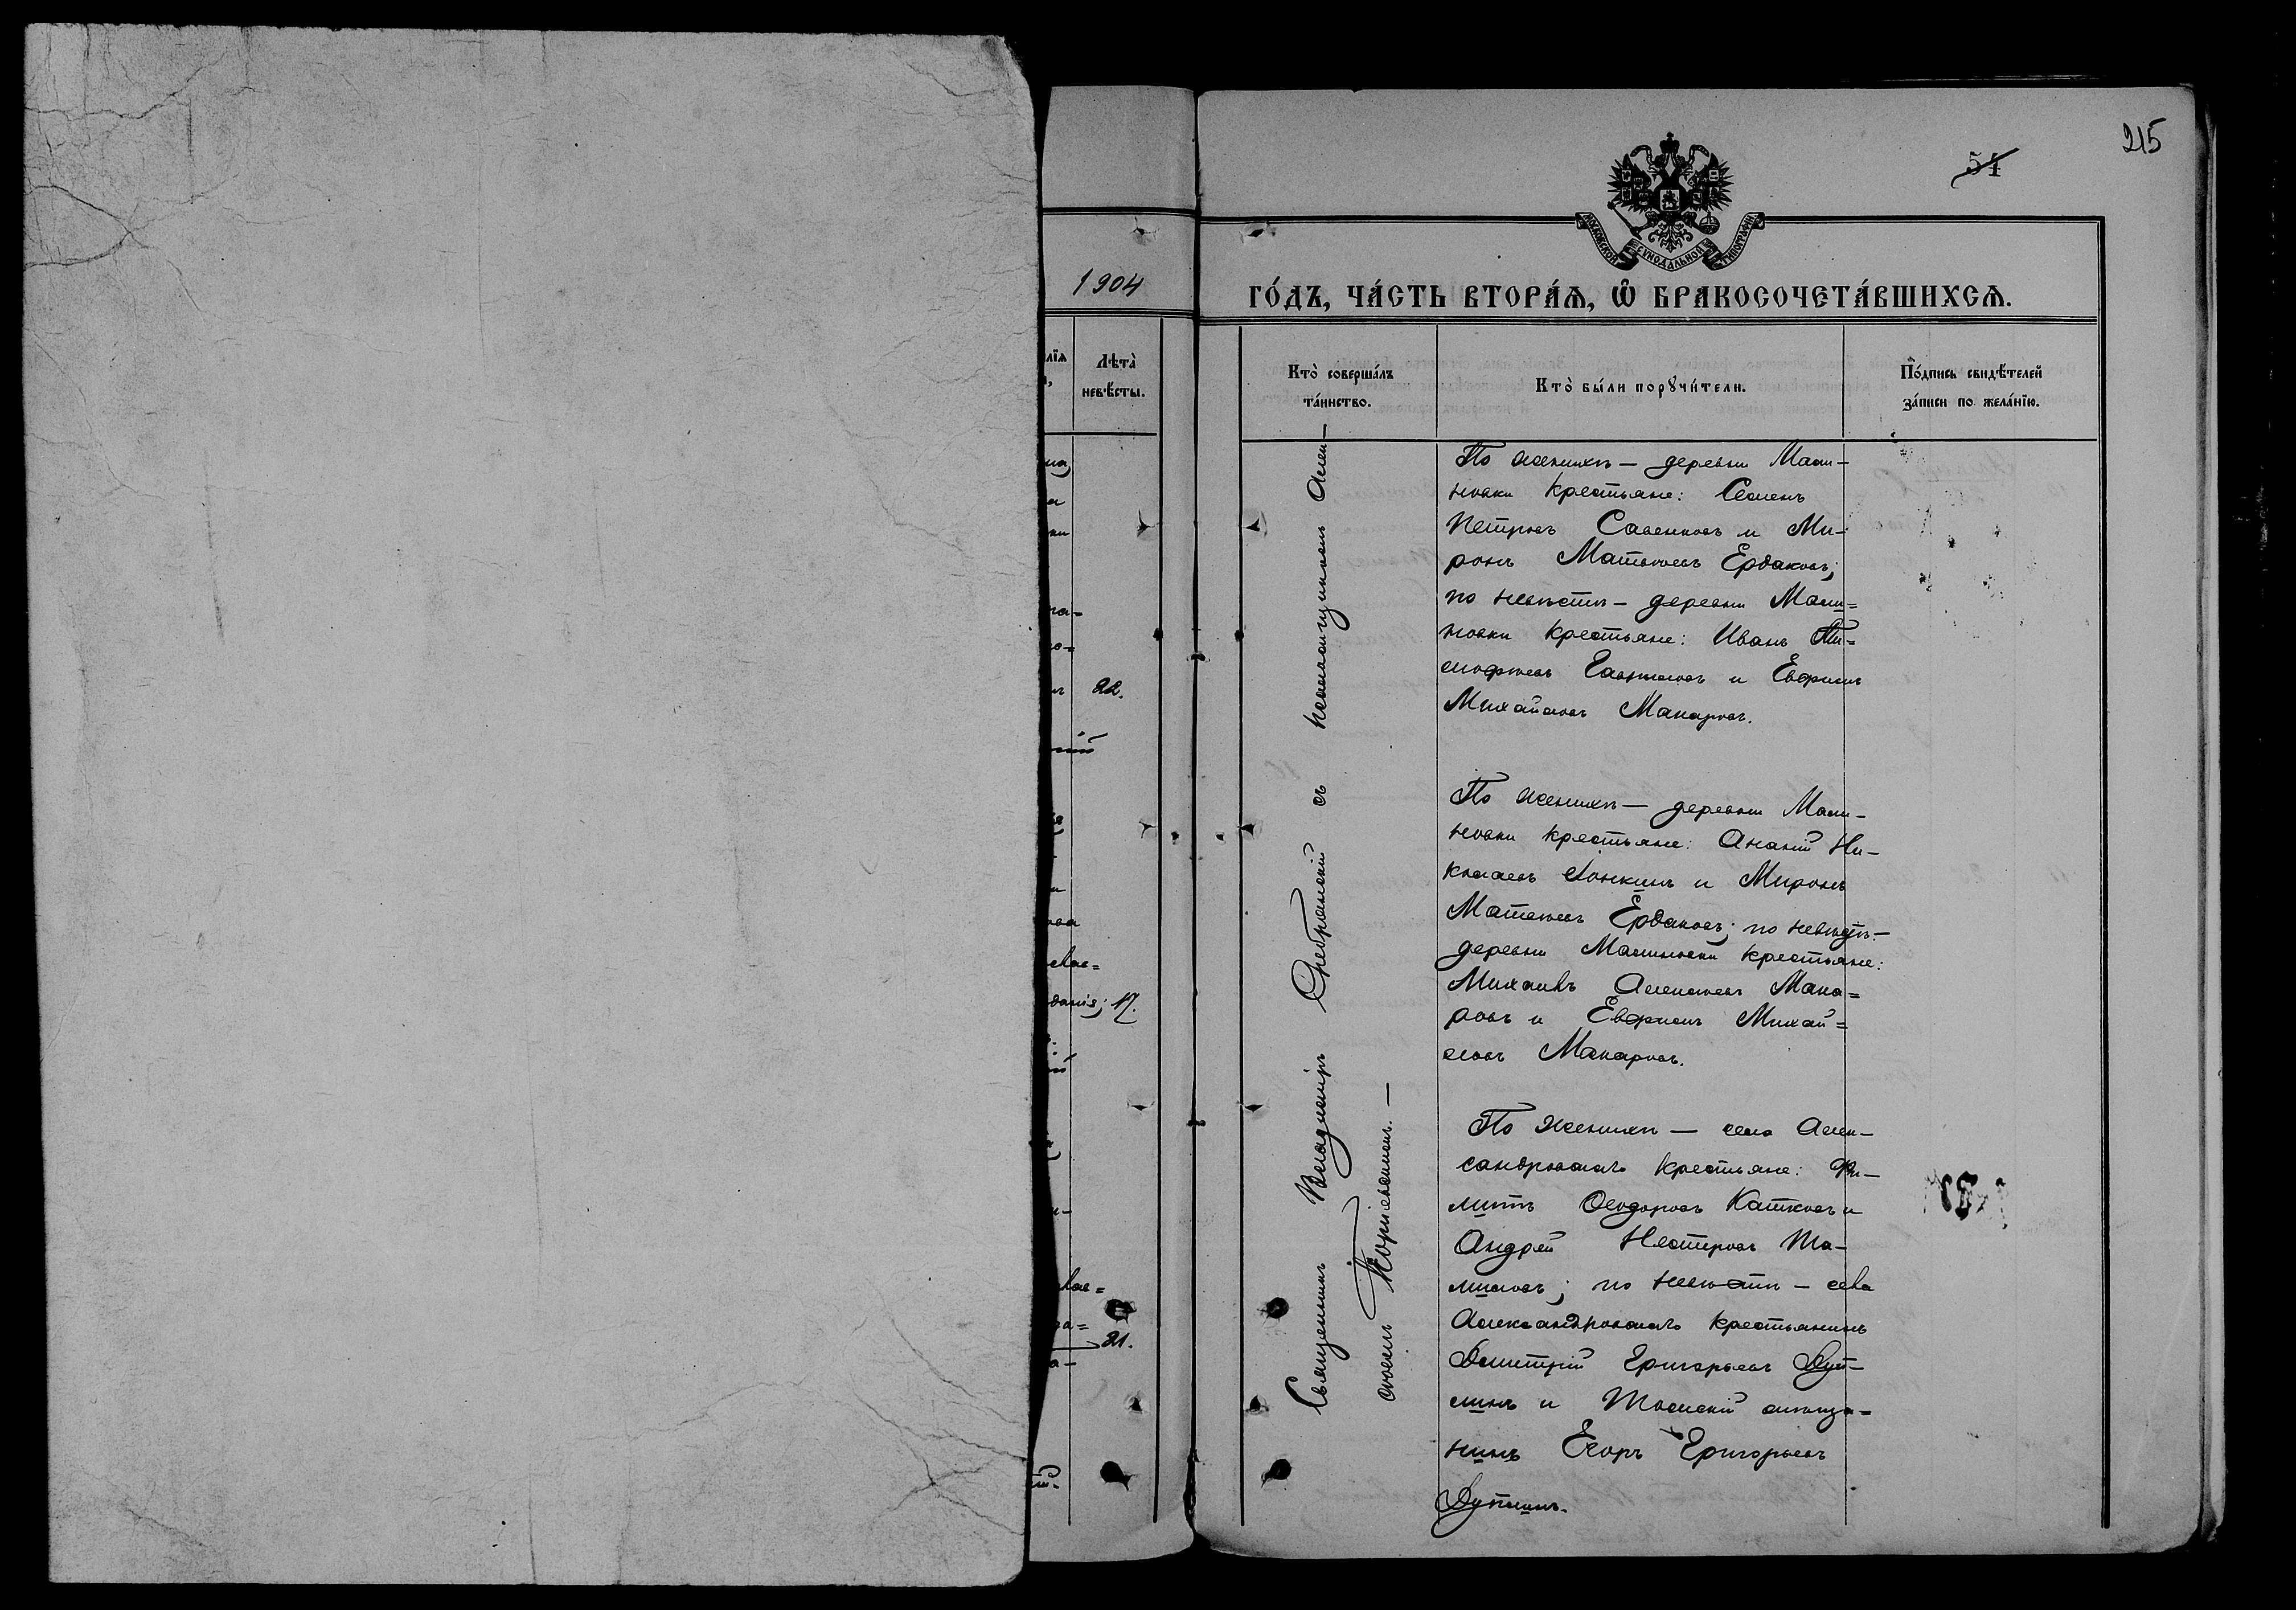 215
54
МОСКОВСКОЙ СѴНОДАЛЬНОЙ ТИПОГРАФІИ
1904
ГО́ДЪ, ЧА́СТЬ ВТОРА́Ѧ, Ѽ БРАКОСОЧЕТА́ВШИХСѦ.
Лѣта̀
невѣ́сты.
Кто̀ соверша́лъ
та́инство.
Кто̀ бы́ли порꙋчи́тели.
По́дпись свидѣ́телей
за́писи по жела́нїю.
22.
17.
21.
Священникъ Владиміръ Сребрянскій съ псаломщикомъ Алек-
сѣемъ
По женихѣ — деревни Мали-
новки крестьяне: Семенъ
Петровъ Савенковъ и Ми-
ронъ Матвѣевъ Ердаковъ;
по невѣстѣ — деревни Мали=
новки крестьяне: Иванъ Ти=
мофѣевъ Гавриловъ и Ефримъ
Михайловъ Макаровъ.
По женихѣ — деревни Мали-
новки крестьяне: Ананій Ни-
колаевъ Лонкинъ и Миронъ
Матвѣевъ Ердаковъ; по невѣстѣ —
деревни Малиновки крестьяне:
Михаилъ Алексѣевъ Мака=
ровъ и Ефримъ Михай=
ловъ Макаровъ.
По женихѣ — села Алек-
сандровскаго крестьяне: Фи-
липпъ Ѳеодоровъ Катковъ и
Андрей Нестеровъ
по невѣстѣ — села
Александровскаго крестьянинъ
Димитрій Григорьевъ
и Томскій мѣща=
нинъ Егоръ Григорьевъ